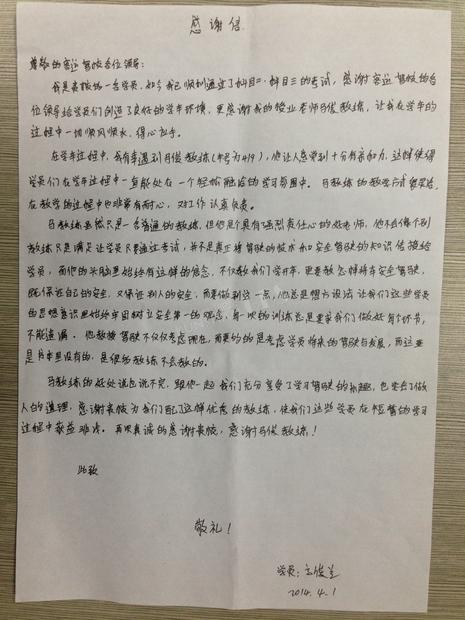 感谢信
尊敬的客运驾校各位领导：
我是贵校的一名学员，如今我已顺利通过了科目二、科目三的考试，感谢客运驾校的各
位领导给学员们创造了良好的学车环境，更感谢我的授业老师马俊教练，让我在学车的
过程中一切顺风顺水，得心应手。
在学车过程中，我有幸遇到马俊教练（车号为419），他让人感觉到十分有亲和力，这样使得
学员们在学车过程中一直能处在一个轻松融洽的学习氛围中。马教练的教学方式很灵活，
在教学的过程中也非常有耐心，对工作认真负责。
马教练虽然只是一名普通的教练，但他是个具有强烈责任心的好老师，他不会像个别
教练只是满足让学员只要通过考试，并不是真正将驾驶的技术和安全驾驶的知识传授给
学员，而他的头脑里始终有这样的信念，不仅教我们学好车，更要教怎样将车安全驾驶，
既保证自己的安全，又保证别人的安全，而要做到这一点，他总是想方设法让我们这些学员
的思想意识里始终牢固树立安全第一的观念，每一次的训练总是要求我们做好每个环节，
不能遗漏。他教授驾驶不仅仅考虑现在，而更多的是考虑学员将来的驾驶与发展，而这一
是书本里没有的，是很多教练不会教的。
马教练的好处说也说不完，跟他一起我们充分享受了学习驾驶的乐趣，也学会了做
人的道理，感谢贵校为我们配了这样优秀的教练，使我们这些学员在短暂的学习
过程中获益非浅。再次真诚的感谢贵校，感谢马俊教练！
此致
敬礼！
学员：王俊兰
2014.4.1